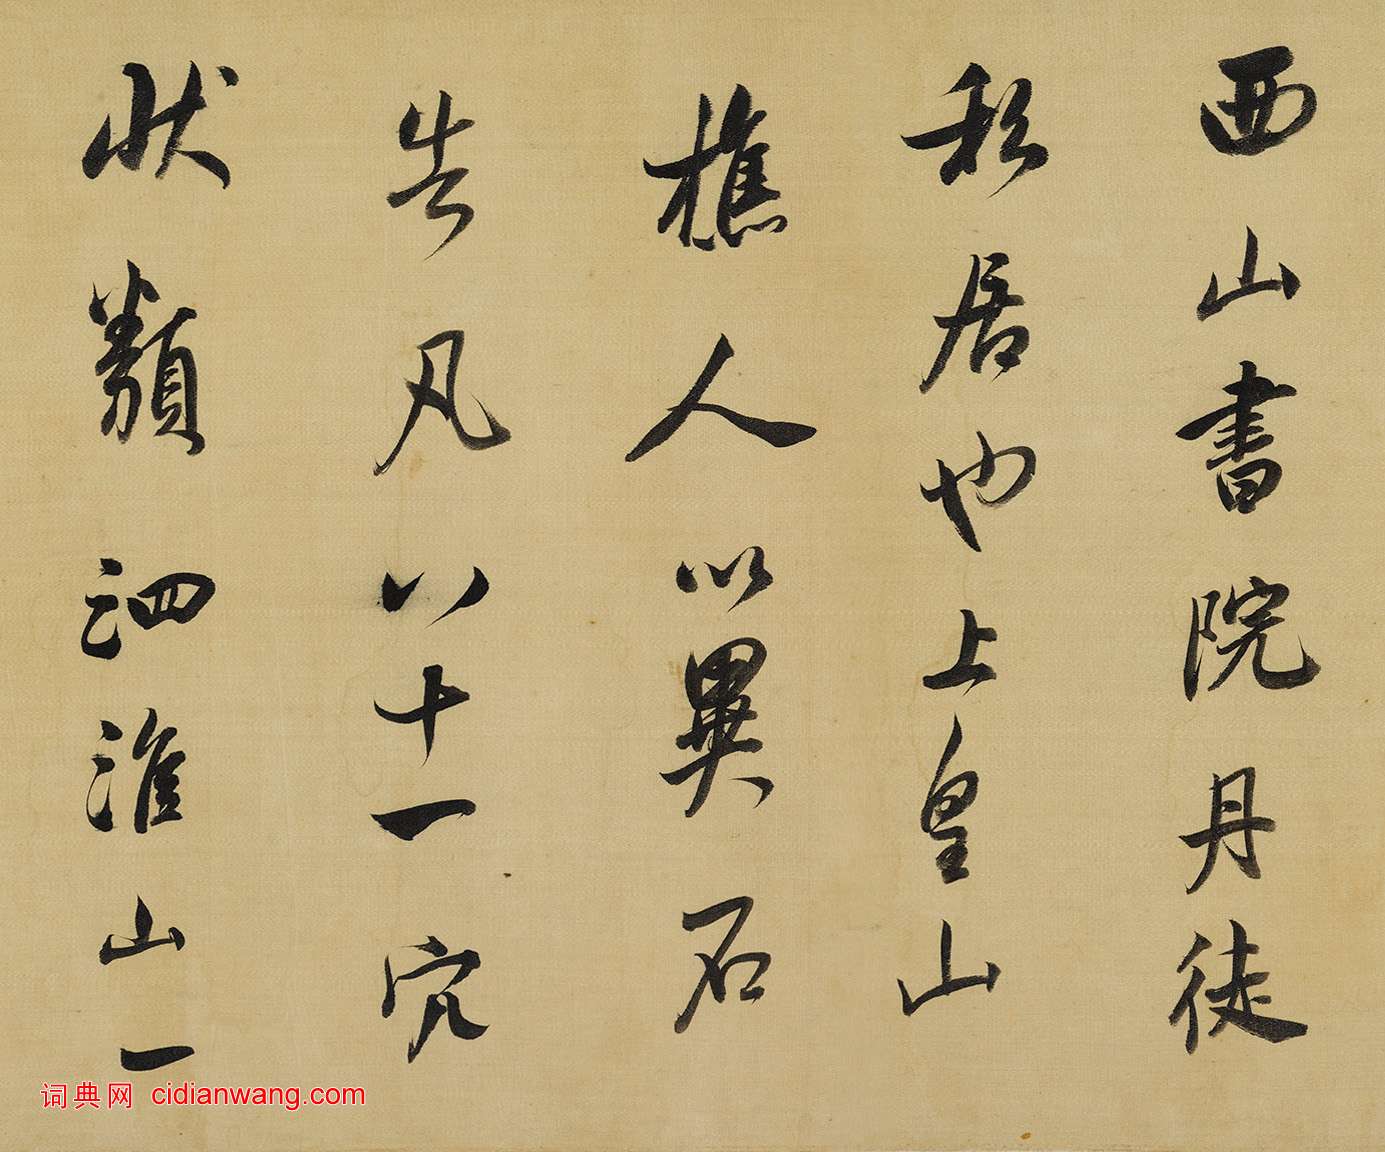 西山書院丹徒
私居也上皇山
樵人以異石
告凡八十一穴
状類泗淮山一
词典网 cidianwang.com